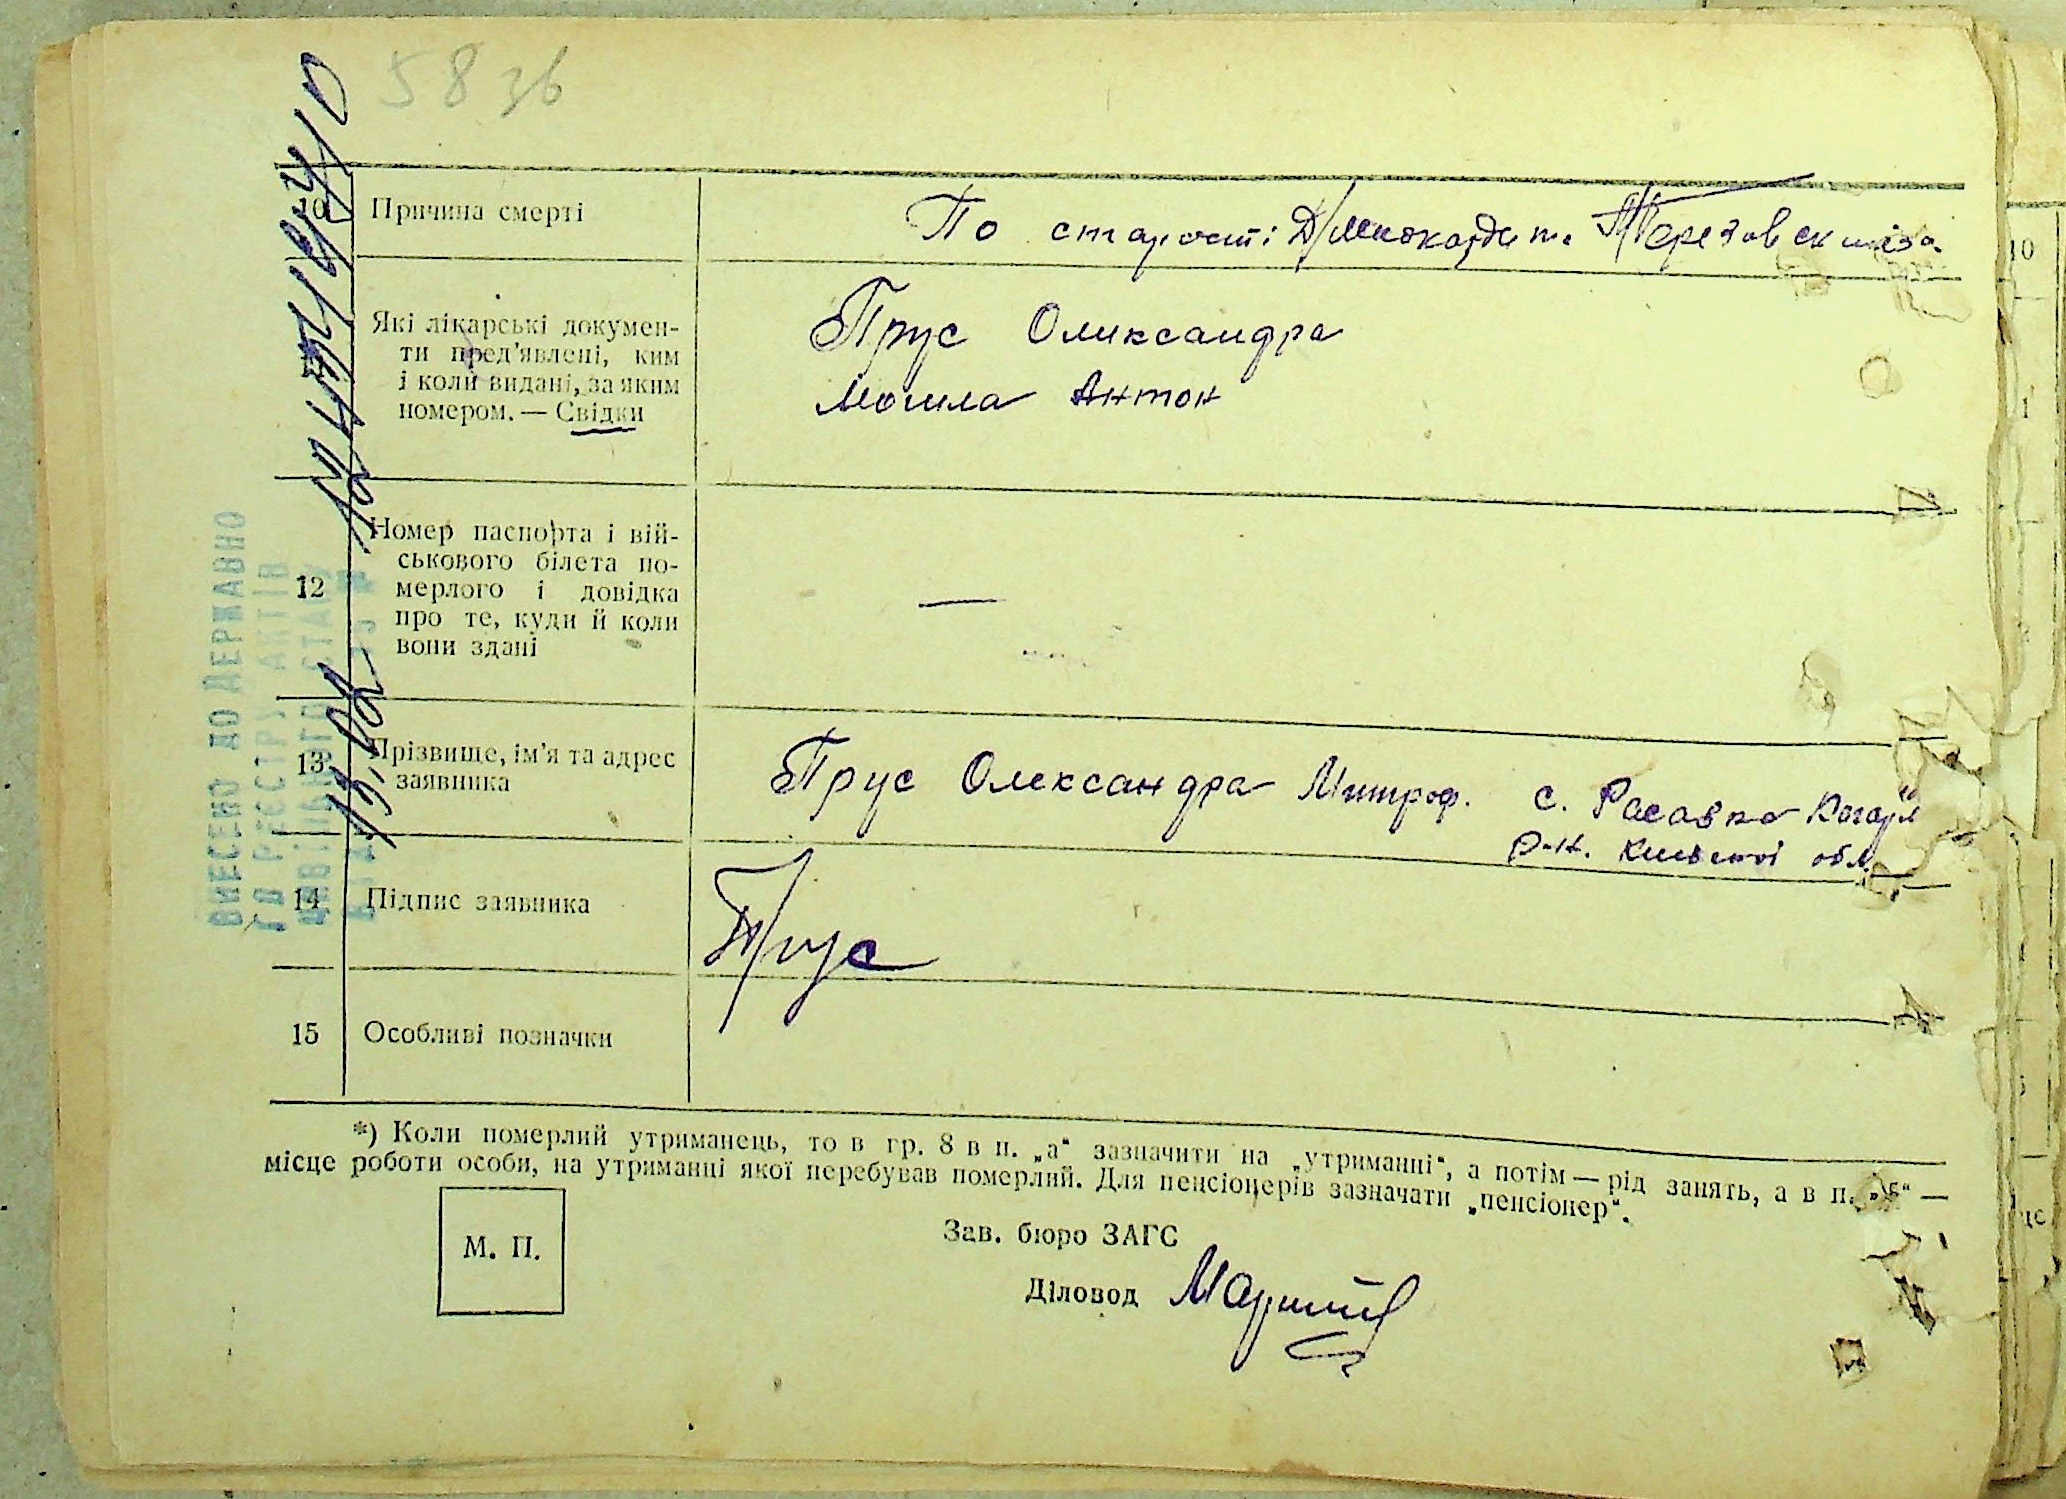 58 зв
10 Причина смерті По старості Д/миокардит.
11 Які лікарські докумен-
ти пред'явлені, ким
і коли видані, за яким
номером. — Свідки
Прус Олександра
Могила Антон
12 Номер паспорта і вій-
ськового білета по-
мерлого і довідка
про те, куди й коли
вони здані
—
13 Прізвище, ім'я та адрес
заявника
Прус Олександра Митроф. с. Расавка Кагарл
р-н. Київської обл.
14 Підпис заявника Прус
15 Особливі позначки
*) Коли померлий утриманець, то в гр. 8 в п. „а“ зазначити на „утриманні“, а потім — рід занять, а в п. „б“ —
місце роботи особи, на утриманні якої перебував померлий. Для пенсіонерів зазначати „пенсіонер“.
М. П.
Зав. бюро ЗАГС
Діловод
ВНЕСЕНО ДО ДЕРЖАВНО
ГО РЕЄСТРУ АКТІВ